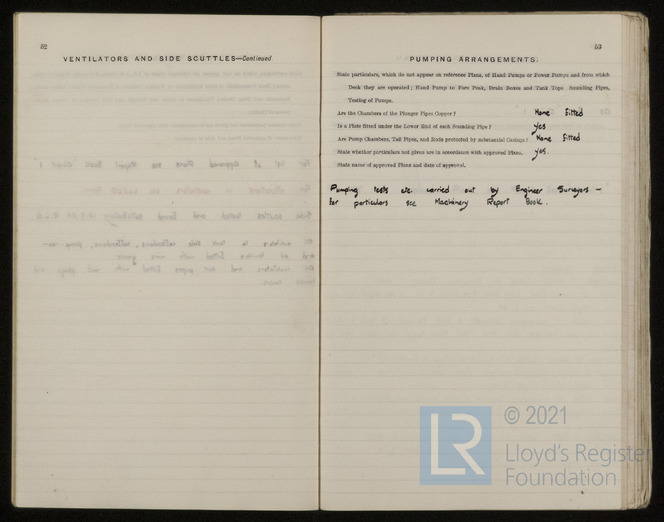 52
VENTILATORS AND SIDE SCUTTLES—Continued
53
PUMPING ARRANGEMENTS.
State particulars, which do not appear on reference Plans, of Hand Pumps or Power Pumps and from which
Deck they are operated; Hand Pump to Fore Peak, Drain Boxes and Tank Tops Sounding Pipes,
Testing of Pumps.
Are the Chambers of the Plunger Pipes Copper? None fitted
Is a Plate fitted under the Lower End of each Sounding Pipe? yes
Are Pump Chambers, Tail Pipes, and Rods protected by substantial Casings? None fitted
State whether particulars not given are in accordance with approved Plans. yes.
State name of approved Plans and date of approval.
Pumping tests etc. carried out by Engineer Surveyors —
for particulars see Machinery Report Book.
LR
© 2021
Lloyd's Register
Foundation